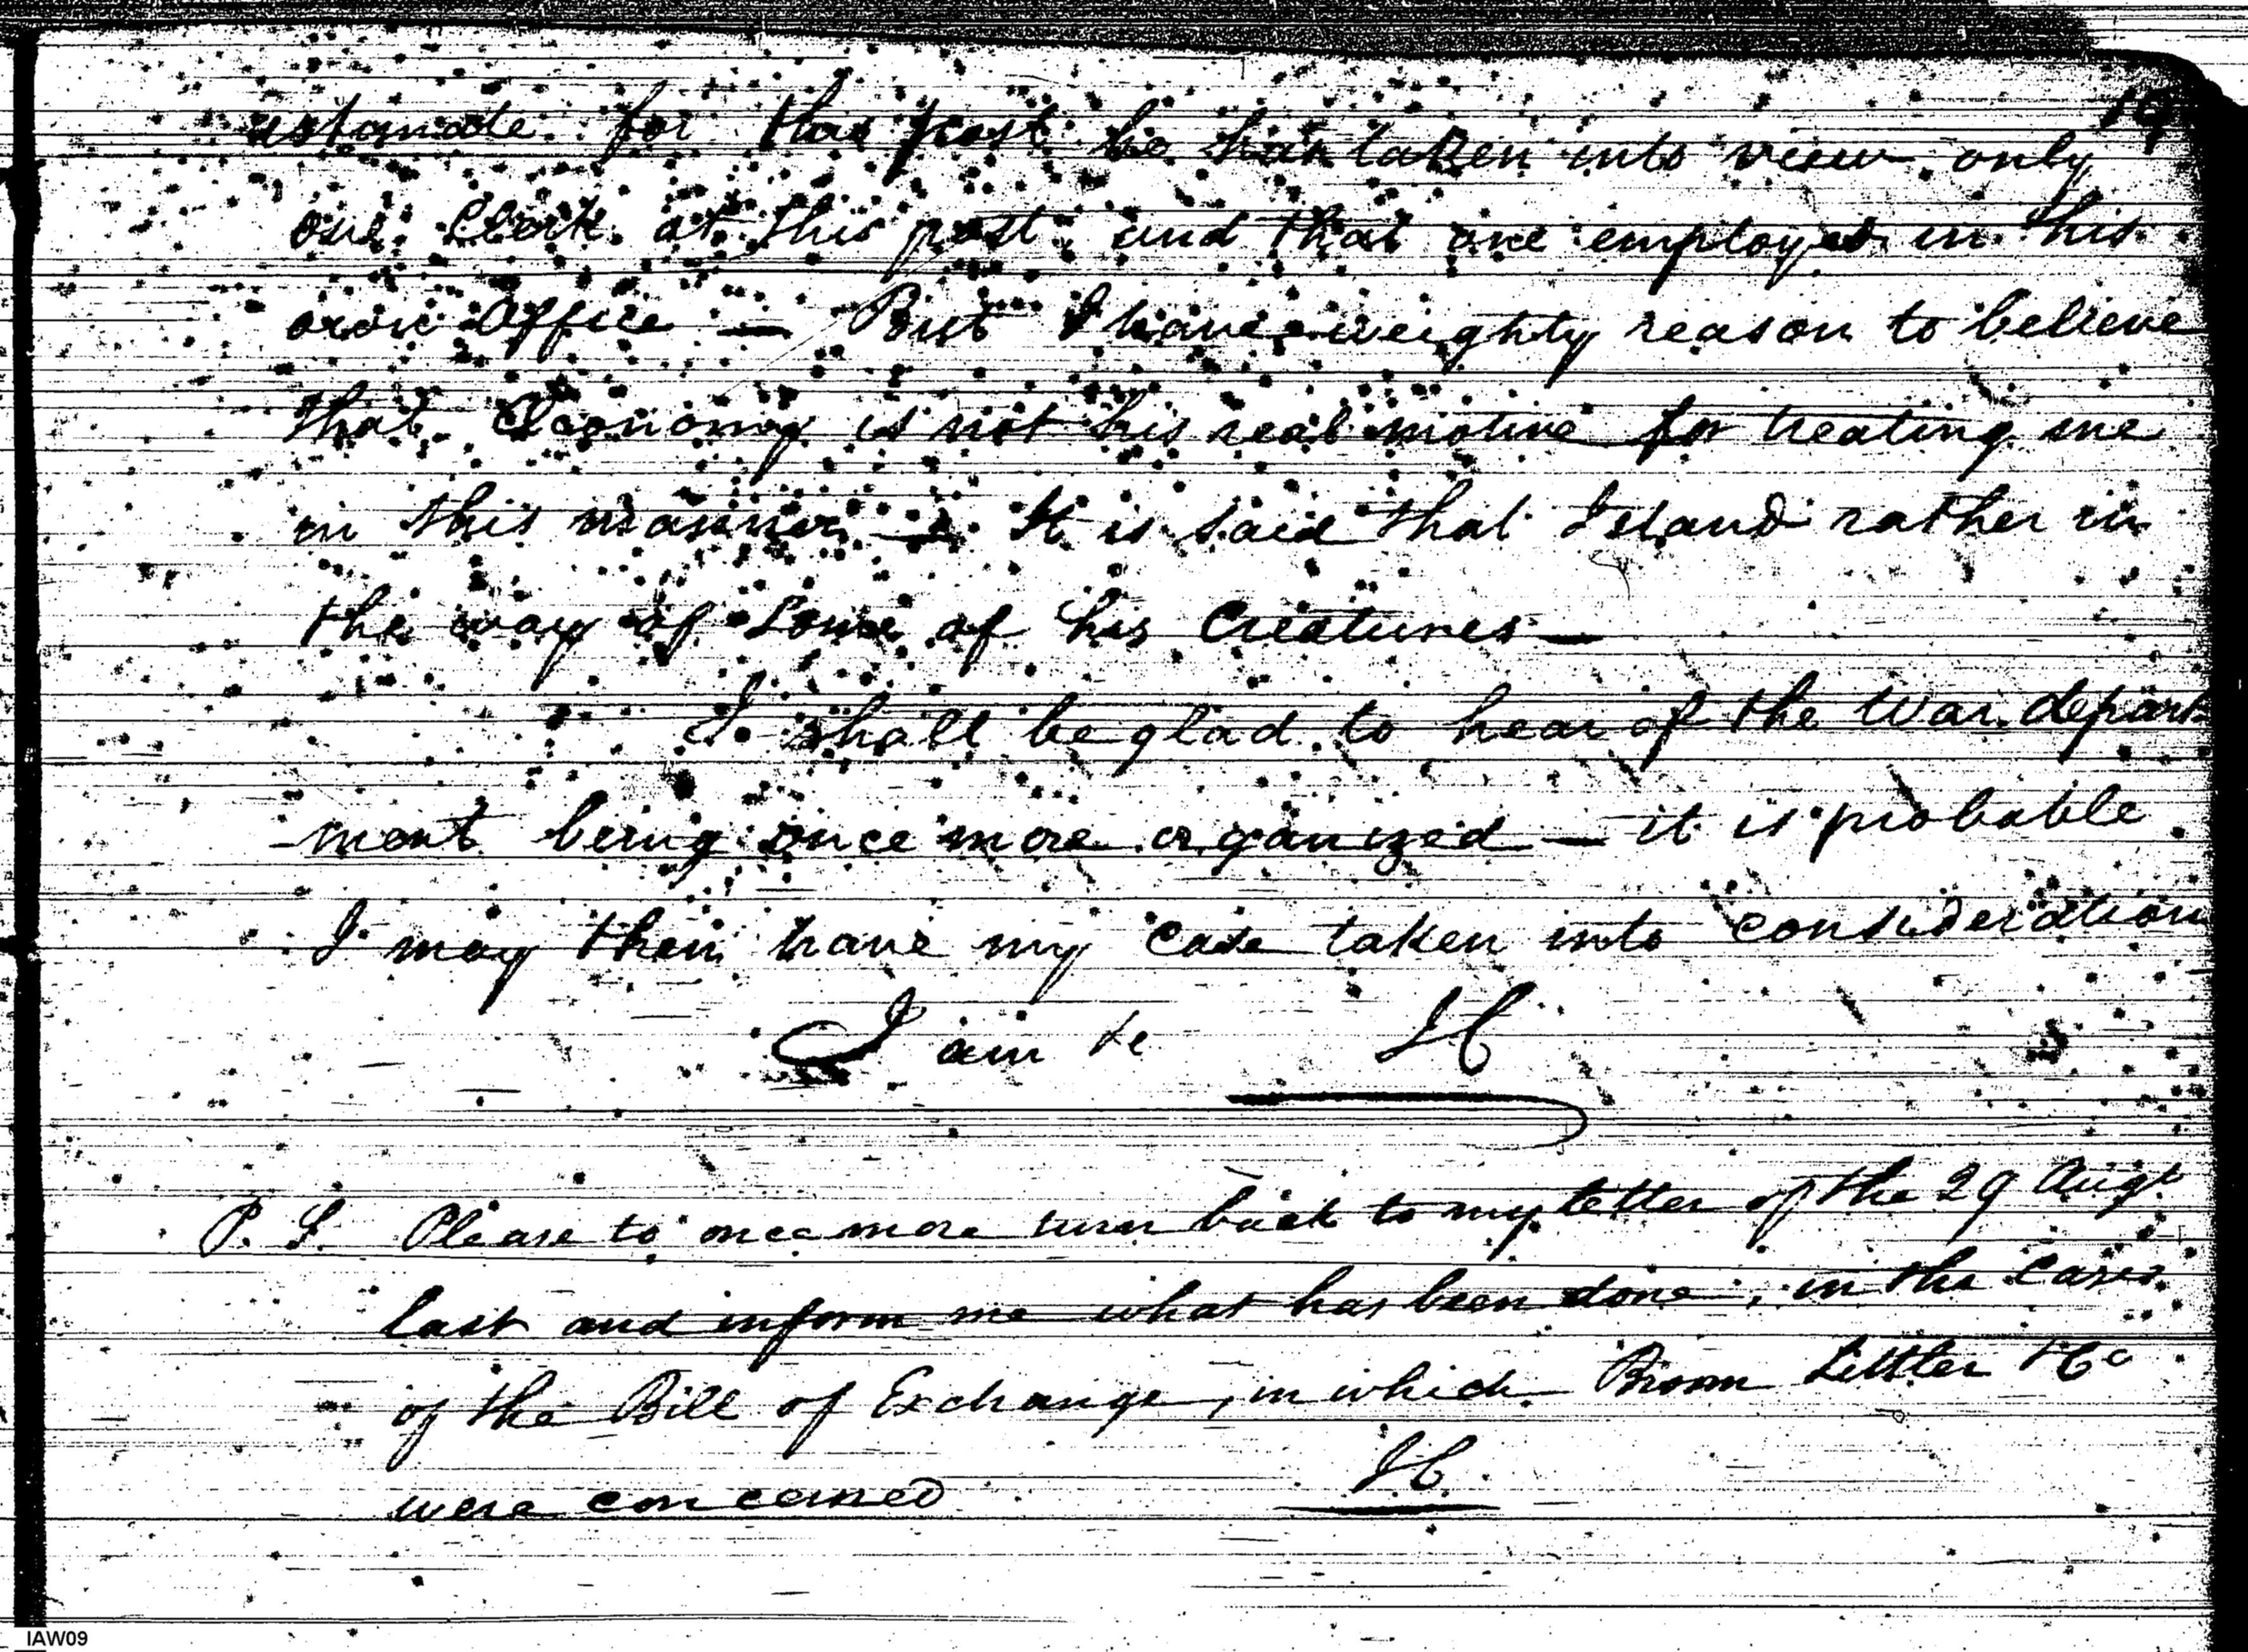 19
estimate for this post he has taken into view only
one Clerk at this post, and that one employed in his
own Office — But I have weighty reason to believe
that Oeconomy is not his real motive for treating me
in this manner — It is said that I stand rather in
the way of some of his Creatures —
I shall be glad to hear of the War depart
-ment being once more organized — it is probable
I may then have my case taken into consideration
I am &c
P. S. Please to once more turn back to my letter of the 29 Augt
last and inform me what has been done, in the Cases
of the Bill of Exchange, in which Broom Littler &Co
were concerned
IAW09